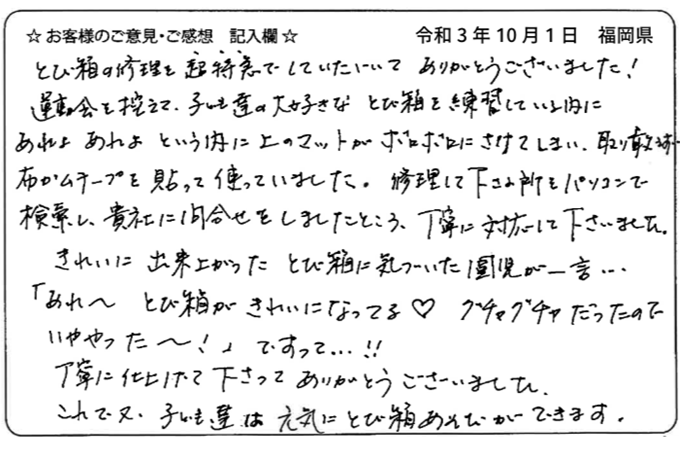 ☆お客様のご意見・ご感想 記入欄☆ 令和3年10月1日 福岡県
とび箱の修理を超特急でしていただいて ありがとうございました!
運動会を控えて、子ども達の大好きな とび箱を練習している内に
あれよ あれよ という内に上のマットが ボロボロにさけてしまい、取り敢えず
布ガムテープを貼って使っていました。修理して下さる所をパソコンで
検索し、貴社に問合せをしましたところ、丁寧に対応して下さいました。
きれいに出来上がった とび箱に気づいた園児が一言…
「あれ〜 とび箱が きれいになってる♡ グチャグチャだったので
いややった〜!」ですって…!!
丁寧に仕上げて下さって ありがとうございました。
これで又、子ども達は元気にとび箱あそびができます。